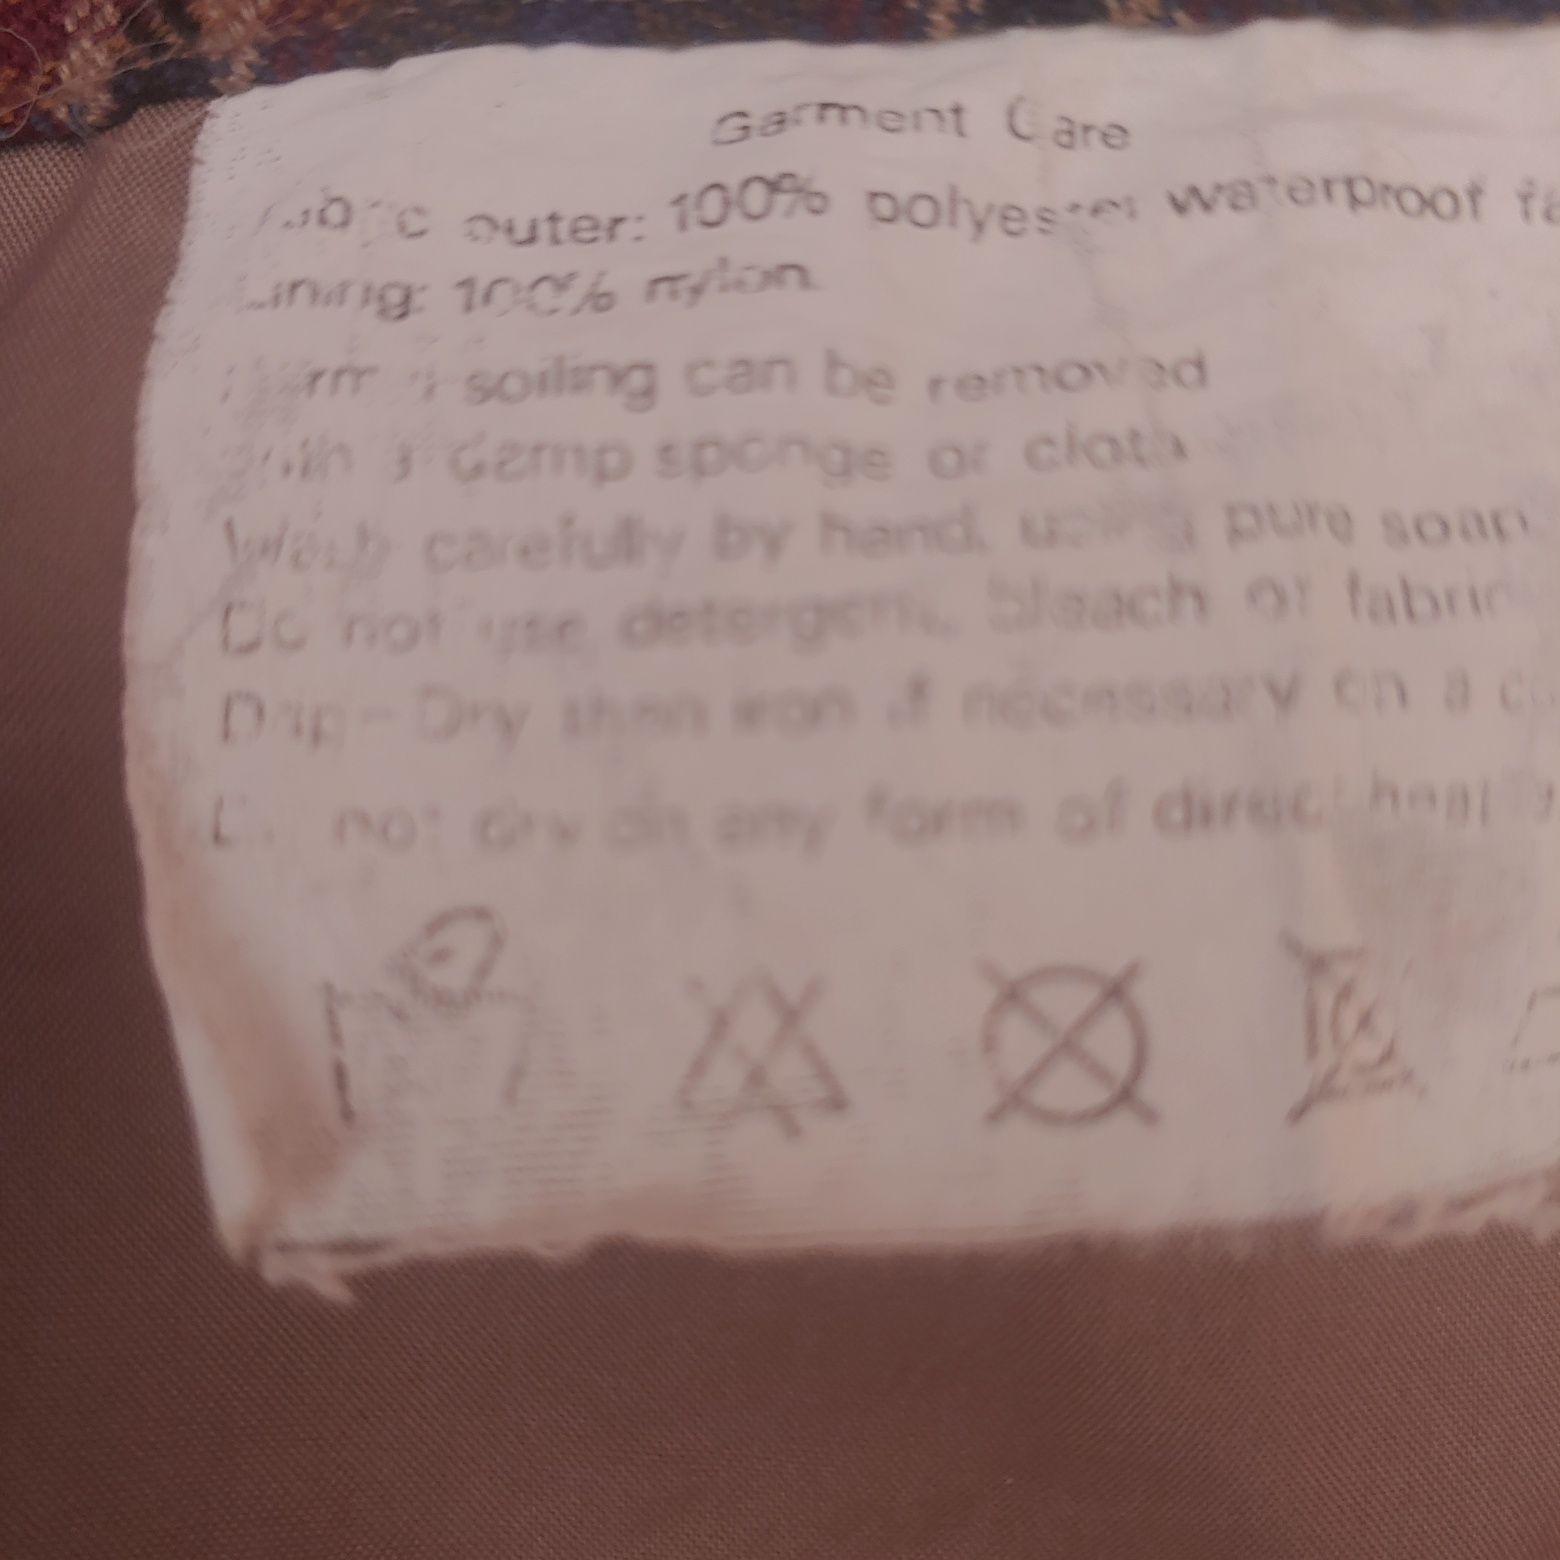 Garment Care
Fabric outer: 100% polyester waterproof fa
Lining: 100% nylon
Normal soiling can be removed
with a damp sponge or cloth
Wash carefully by hand, using pure soap
Do not use detergent, bleach or fabric
Drip-Dry then iron if necessary on a co
Do not dry on any form of direct heat